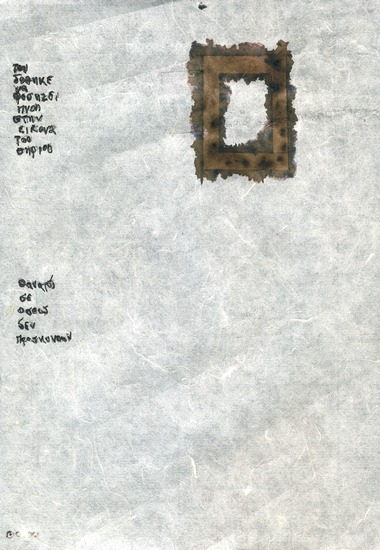 του
δόθηκε
να
φυσήξει
πνοή
στην
εικόνα
του
θηρίου
θάνατος
σε
όσους
δεν
προσκυνούν